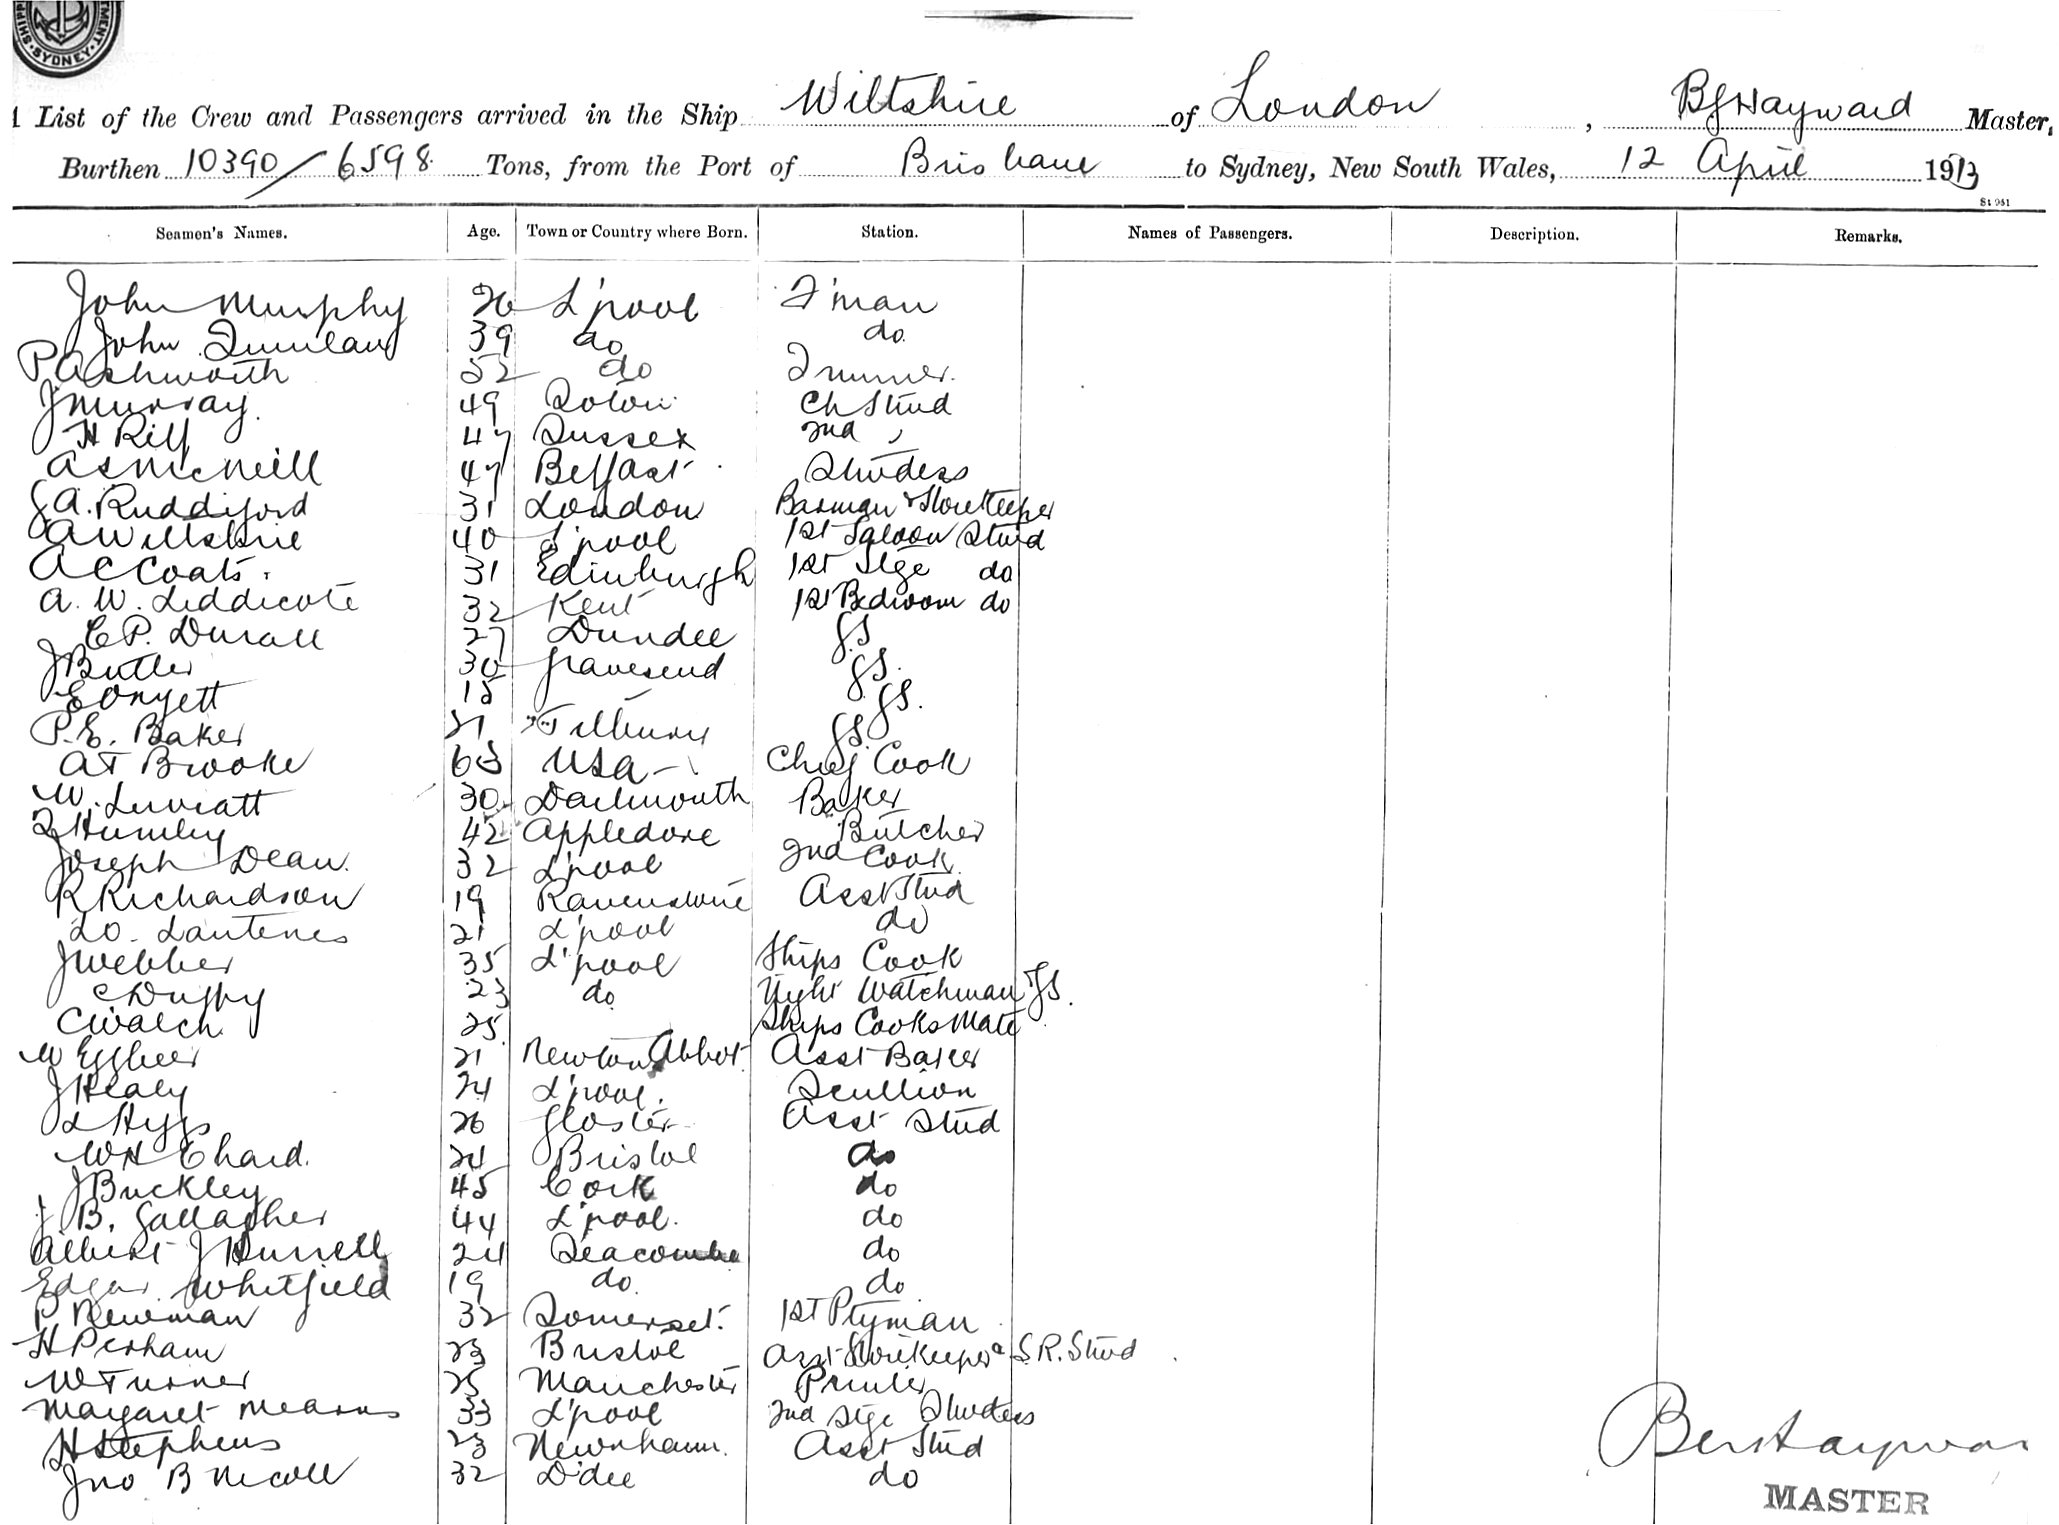 SHIPP MENT. SYDNEY.
List of the Crew and Passengers arrived in the Ship Wiltshire of London, BG Hayward Master,
Burthen 10390/6598 Tons, from the Port of Brisbane to Sydney, New South Wales, 12 April 1913
St 951
Seamen's Names. Age. Town or Country where Born. Station. Names of Passengers. Description. Remarks.
John Murphy 26 L'pool F'man
John Quinlan 39 do do
P Ashworth 52 do Trimmer.
J Murray. 49 Soton Ch Stwd
H Rilf 47 Sussex 2nd "
A S McNeill 47 Belfast Stwdess
G A. Ruddiford 31 London Barman & Storekeeper
A Wiltshire 40 L'pool 1st Saloon Stwd
A C Coats. 31 Edinburgh 1st Stge do
A. W. Liddicote 32 Kent 1st Bedroom do
C P. Durall 27 Dundee GS
J Butler 30 Gravesend GS.
E Onyett 15 GS.
P. E. Baker 21 " Tilbury GS.
A T Brooke 63 USA - Chief Cook
W. 30 Dartmouth Baker
Humley 42 Appledore Butcher
Joseph Dean. 32 L'pool 2nd Cook
R Richardson 19 Asst Stwd
Lo. 21 L'pool do
J Webber 35 L'pool Ships Cook
C Duffy 23 do Night Watchman & GS.
C Walch 25 Ships Cooks Mate
W Eggbeer 21 Newton Abbot. Asst Baker
J Healy 24 L'pool. Scullion
L Higgs 26 Gloster Asst Stwd
W H Chard. 24 Bristol do
J Buckley 45 Cork do
J B. Gallagher 44 L'pool. do
Albert J Hurrell 24 Seacombe do
Edgar Whitfield 19 do do
P Newman 32 Somerset. 1st Ptyman
H Perham 23 Bristol Asst Storekeeper & S.R. Stwd
W Turner 25 Manchester Printer
Margaret Mearns 33 L'pool 2nd Stge Stwdess
H Stephens 23 Newnham. Asst Stwd
Jno B Nicoll 32 D'dee do
Hayward
MASTER